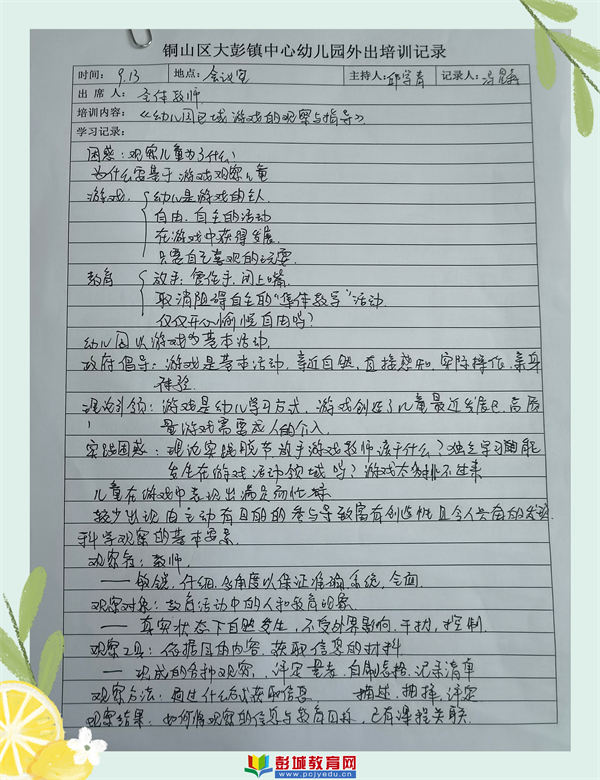 铜山区大彭镇中心幼儿园外出培训记录
时间：9.13 地点：会议室 主持人： 记录人：
出席人：全体教师
培训内容：《幼儿园区域游戏的观察与指导》
学习记录：
困惑：观察儿童为了什么
为什么要基于游戏观察儿童
游戏 幼儿是游戏的主人
自由、自主的活动
在游戏中获得发展
只要自己喜欢的玩耍
教育 放手：管住手，闭上嘴
取消阻碍自主的“集体教学”活动
仅仅开心愉悦自由吗？
幼儿园以游戏为基本活动
政府倡导：游戏是基本活动，亲近自然，直接感知，实际操作，亲身
体验
理论引领：游戏是幼儿学习方式，游戏创造了儿童最近发展区，高质
量游戏需要成人的介入
实践困惑：理论实践脱节 放手游戏教师该干什么？独立学习
发生在游戏活动领域吗？游戏
儿童在游戏中表现出满足而忙碌
较少出现由主动有目的的参与导致富有创造性且令人兴奋的经验
科学观察的基本要素
观察者：教师
——敏锐，仔细，多角度以保证准确，系统，全面
观察对象：教育活动中的人和教育现象
——真实状态下自然发生，不受外界影响，干扰，控制
观察工具：依据具体内容，获取信息的材料
——现成的各种观察，评定量表，自制表格，记录清单
观察方法：通过什么方式获取信息 描述，抽样，评定
观察结果：如何将观察的信息与教育目标，已有课程关联
彭城教育网
www.pcjyedu.cn